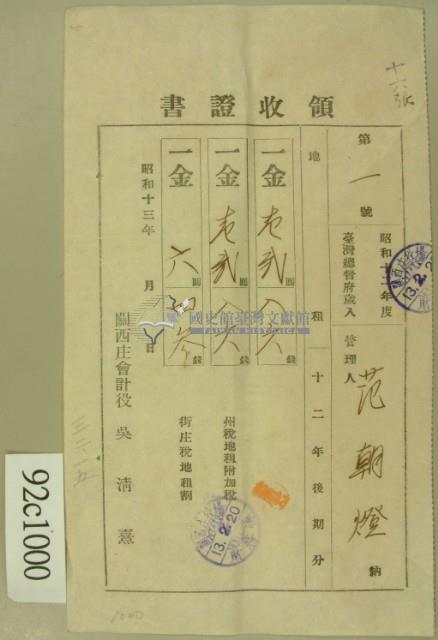 十六張
領收證書
第一號
昭和十二年度
臺灣總督府歲入
管理人 范朝燈 納
地租 十二年後期分
一金 壱弐圓八六錢
一金 壱弐圓八六錢
州稅地租附加稅
一金 六圓四参錢
街庄稅地租割
昭和十三年 月 日
關西庄會計役 吳清熹
13.2.20
13.2.20
國史館臺灣文獻館
TAIWAN HISTORICA
三二一五
92c1000
1000